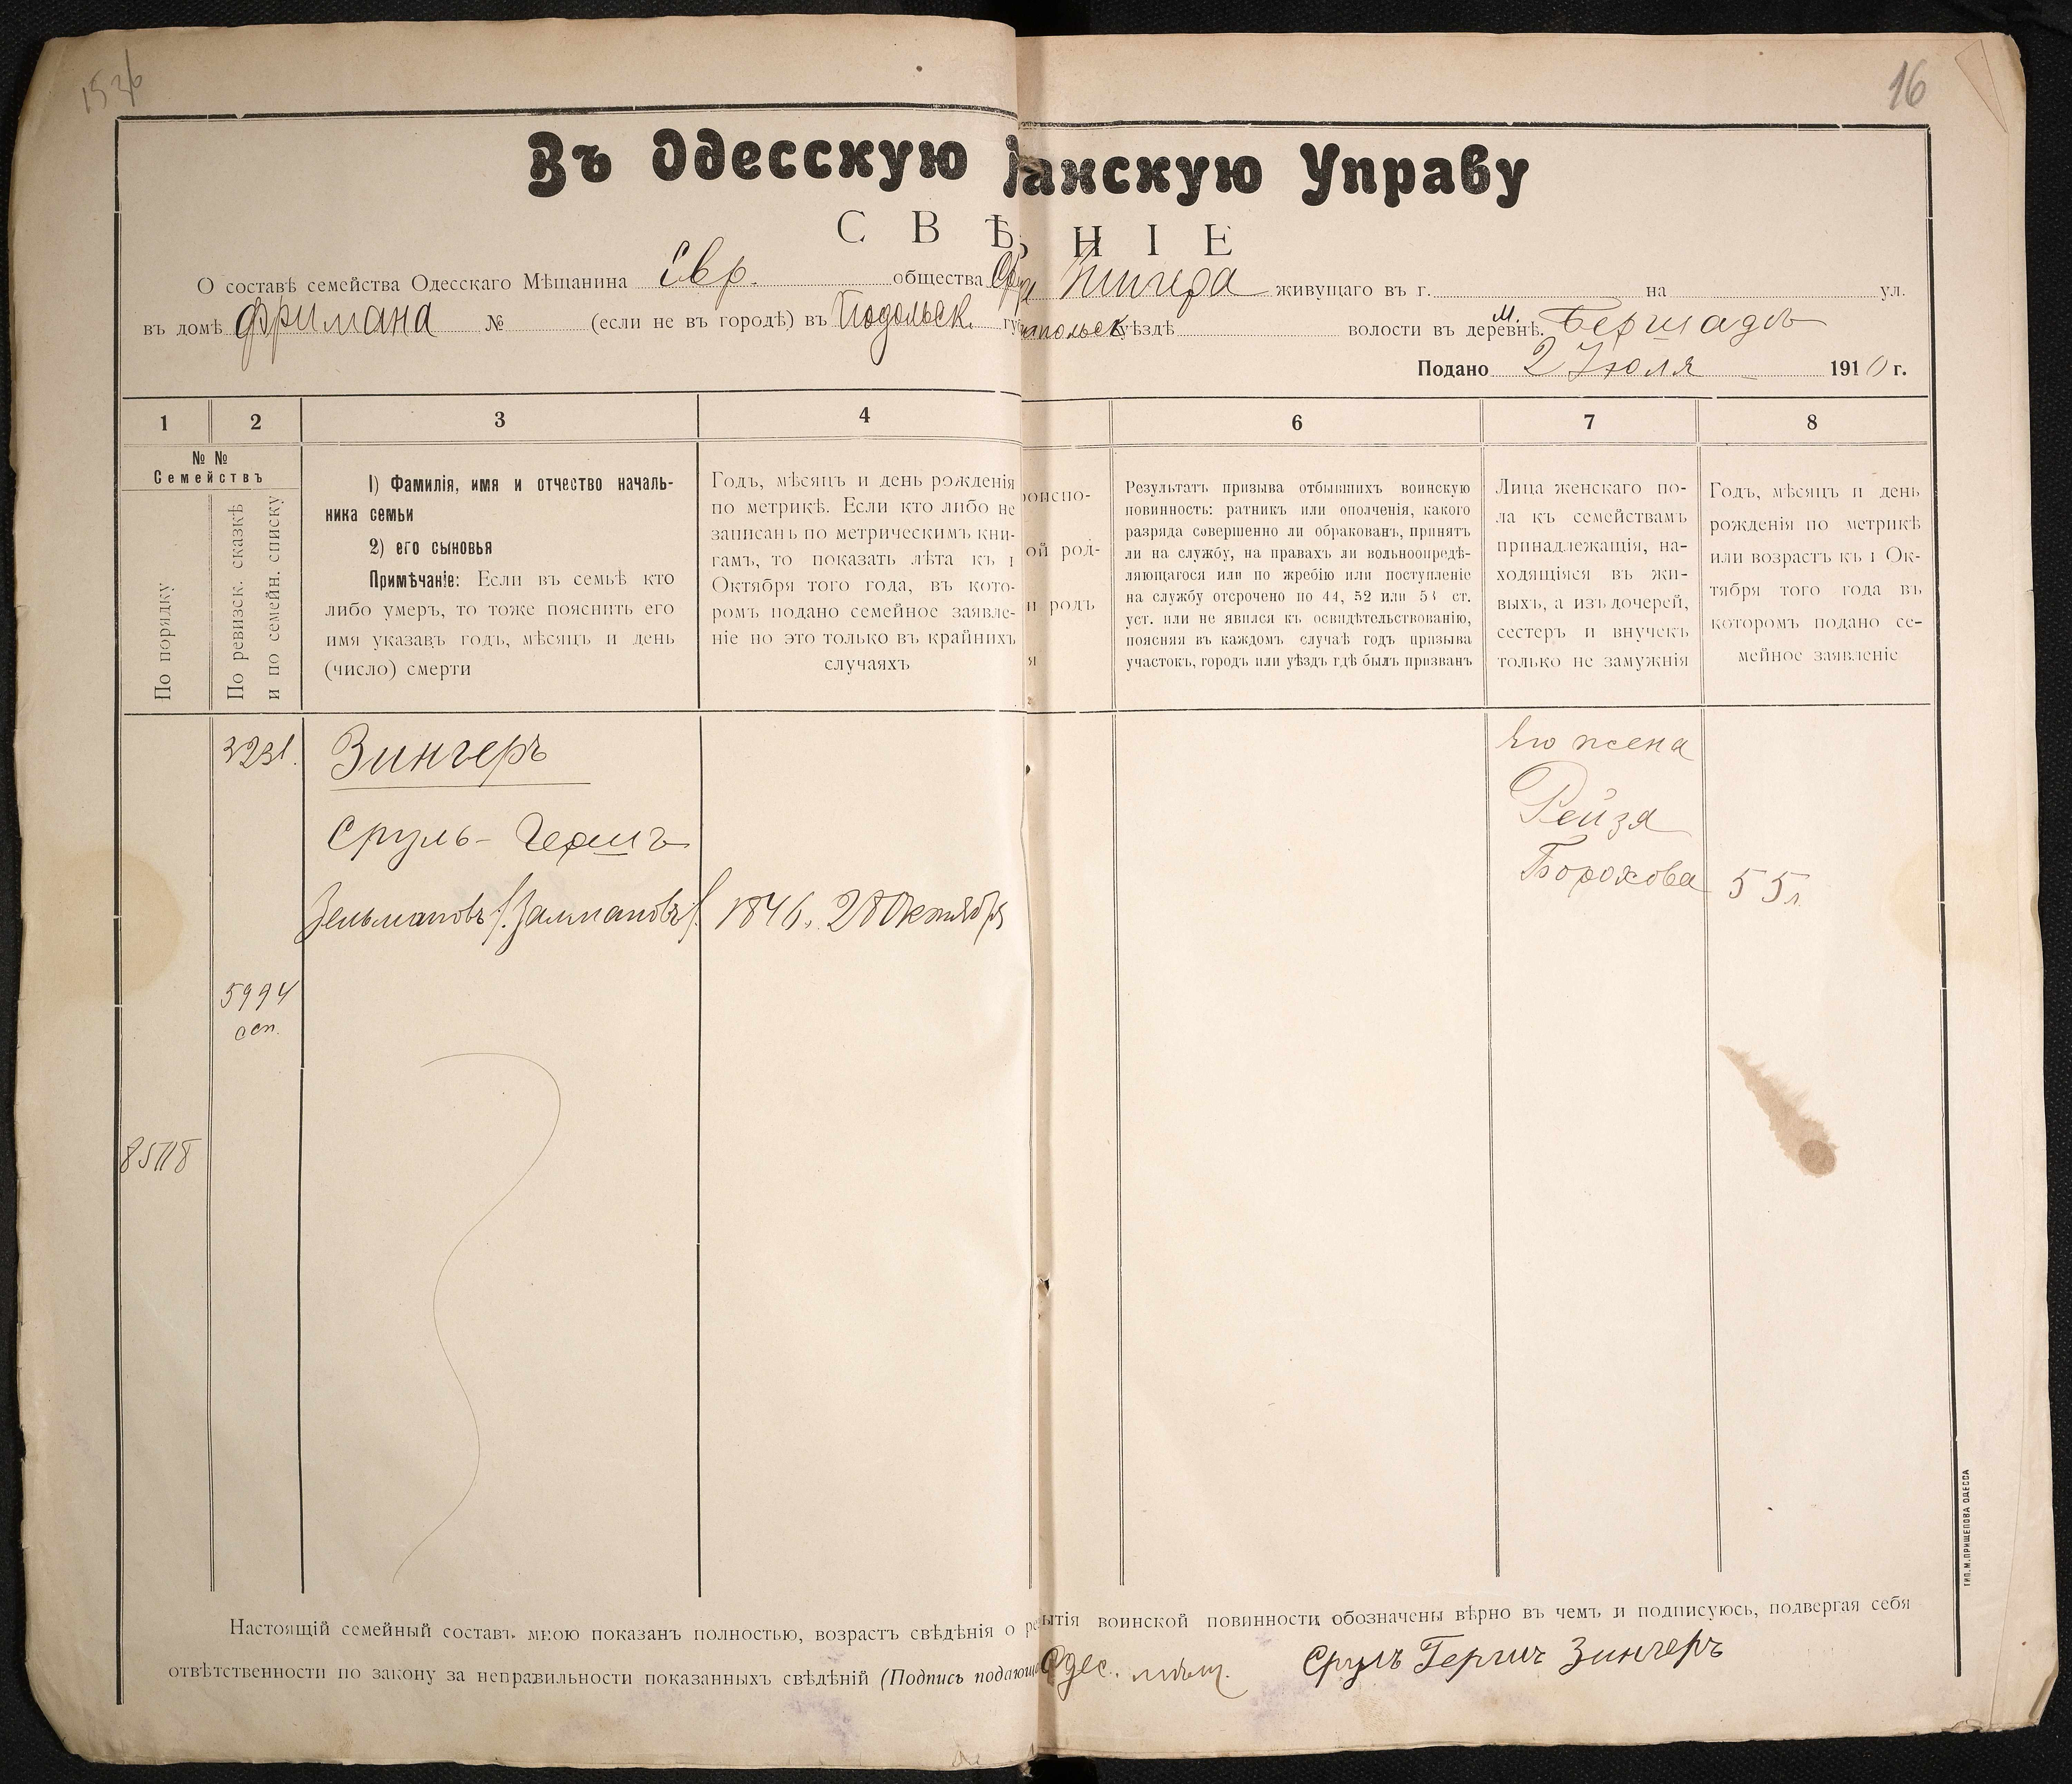 1536
16
Въ Одесскую
анскую Управу
СВѢ
НІЕ
О составѣ семейства Одесскаго Мѣщанина Евр. общества
живущаго въ г. на ул.
въ домѣ Фримана № (если не въ городѣ) въ Подольск. гу
польск уѣздѣ волости въ деревнѣ. м. Бершадь
Подано 2 Іюля 1910 г.
1 2 3 4 6 7 8
№ №
Семействъ
По порядку
По ревизск. сказкѣ
и по семейн. списку
1) Фамилія, имя и отчество началь-
ника семьи
2) его сыновья
Примѣчаніе: Если въ семьѣ кто
либо умеръ, то тоже пояснить его
имя указавъ годъ, мѣсяцъ и день
(число) смерти
Годъ, мѣсяцъ и день рожденія
по метрикѣ. Если кто либо не
записанъ по метрическимъ кни-
гамъ, то показать лѣта къ 1
Октября того года, въ кото-
ромъ подано семейное заявле-
ніе но это только въ крайнихъ
случаяхъ
роиспо-
ой род-
и родъ
я
Результатъ призыва отбывшихъ воинскую
повинность: ратникъ или ополченія, какого
разряда совершенно ли обракованъ, принятъ
ли на службу, на правахъ ли вольноопредѣ-
ляющагося или по жребію или поступленіе
на службу отсрочено по 44, 52 или 53 ст.
уст. или не явился къ освидѣтельствованію,
поясняя въ каждомъ случаѣ годъ призыва
участокъ, городъ или уѣздъ гдѣ былъ призванъ
Лица женскаго по-
ла къ семействамъ
принадлежащія, на-
ходящіяся въ жи-
выхъ, а изъ дочерей,
сестеръ и внучекъ
только не замужнія
Годъ, мѣсяцъ и день
рожденія по метрикѣ
или возрастъ къ 1 Ок-
тября того года въ
которомъ подано се-
мейное заявленіе
3231.
Зингеръ
Сруль-Гершъ
Зельмановъ (Залмановъ) 1846. 28 Октября
Его жена
Рейзя
Борохова 55 л.
5994
8518
Настоящій семейный составъ мною показанъ полностью, возрастъ свѣдѣнія о
ытія воинской повинности обозначены вѣрно въ чемъ и подписуюсь, подвергая себя
отвѣтственности по закону за неправильности показанныхъ свѣдѣній (Подпись подающ
Одес. мѣщ. Срулъ Гершъ Зингеръ
ТИП. М. ПРИЩЕПОВА ОДЕССА